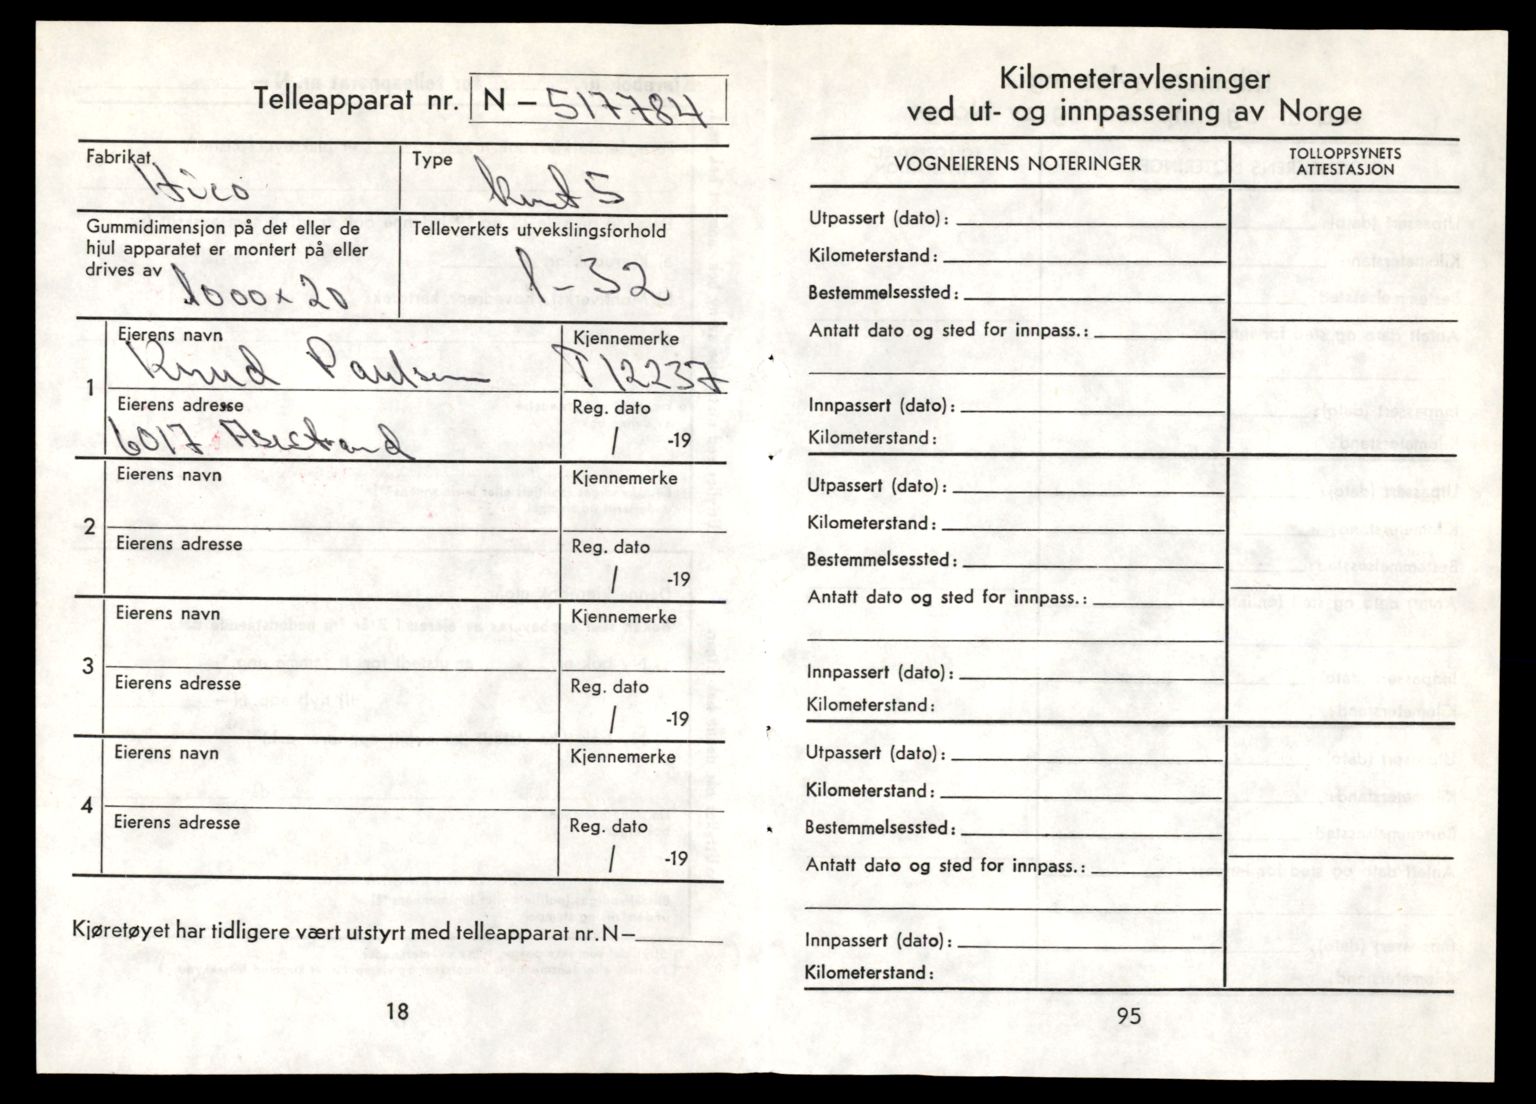 Telleapparat nr. N – 517784
Fabrikat
Type
Gummidimensjon på det eller de
hjul apparatet er montert på eller
drives av 1000 x 20
Telleverkets utvekslingsforhold
1 - 32
1
Eierens navn
Knud Paulsen
Kjennemerke
T 12237
Eierens adresse
6017 Åsestrand
Reg. dato
/ -19
2
Eierens navn
Kjennemerke
Eierens adresse
Reg. dato
/ -19
3
Eierens navn
Kjennemerke
Eierens adresse
Reg. dato
/ -19
4
Eierens navn
Kjennemerke
Eierens adresse
Reg. dato
/ -19
Kjøretøyet har tidligere vært utstyrt med telleapparat nr. N –
18
Kilometeravlesninger
ved ut- og innpassering av Norge
VOGNEIERENS NOTERINGER
TOLLOPPSYNETS
ATTESTASJON
Utpassert (dato):
Kilometerstand:
Bestemmelsessted:
Antatt dato og sted for innpass.:
Innpassert (dato):
Kilometerstand:
Utpassert (dato):
Kilometerstand:
Bestemmelsessted:
Antatt dato og sted for innpass.:
Innpassert (dato):
Kilometerstand:
Utpassert (dato):
Kilometerstand:
Bestemmelsessted:
Antatt dato og sted for innpass.:
Innpassert (dato):
Kilometerstand:
95